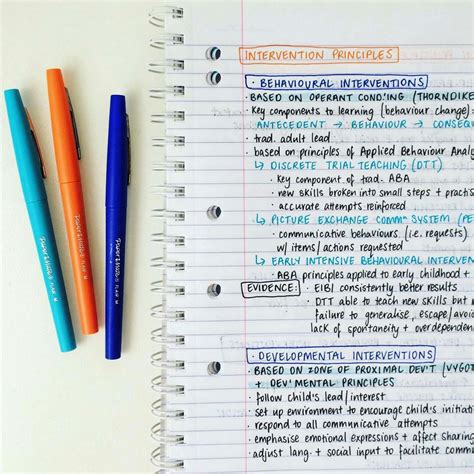 INTERVENTION PRINCIPLES
• BEHAVIOURAL INTERVENTIONS
• BASED ON OPERANT COND.'ING (THORNDIKE
• Key components to learning (behaviour change):
ANTECEDENT → BEHAVIOUR → CONSEQU
• trad. adult lead
• based on principles of Applied Behaviour Anal
↳ DISCRETE TRIAL TEACHING (DTT)
• Key component of trad. ABA
• new skills broken into small steps + practis
• accurate attempts reinforced
↳ PICTURE EXCHANGE COMMN SYSTEM (PE
• communicative behaviours (i.e. requests)
w/ items/actions requested
↳ EARLY INTENSIVE BEHAVIOURAL INTERVEN
• ABA principles applied to early childhood +
EVIDENCE: • EIBI consistently better results
• DTT able to teach new skills but
failure to generalise, escape/avoi
lack of spontaneity + overdependen
• DEVELOPMENTAL INTERVENTIONS
• BASED ON ZONE OF PROXIMAL DEV'T (VYGOT
+ DEV'MENTAL PRINCIPLES
• follow child's lead/interest
• set up environment to encourage child's initiat
• respond to all communicative attempts
• emphasise emotional expressions + affect sharing
• adjust lang. + social input to facilitate commu
Paper Mate FLAIR M
Paper Mate FLAIR M
Paper Mate FLAIR M